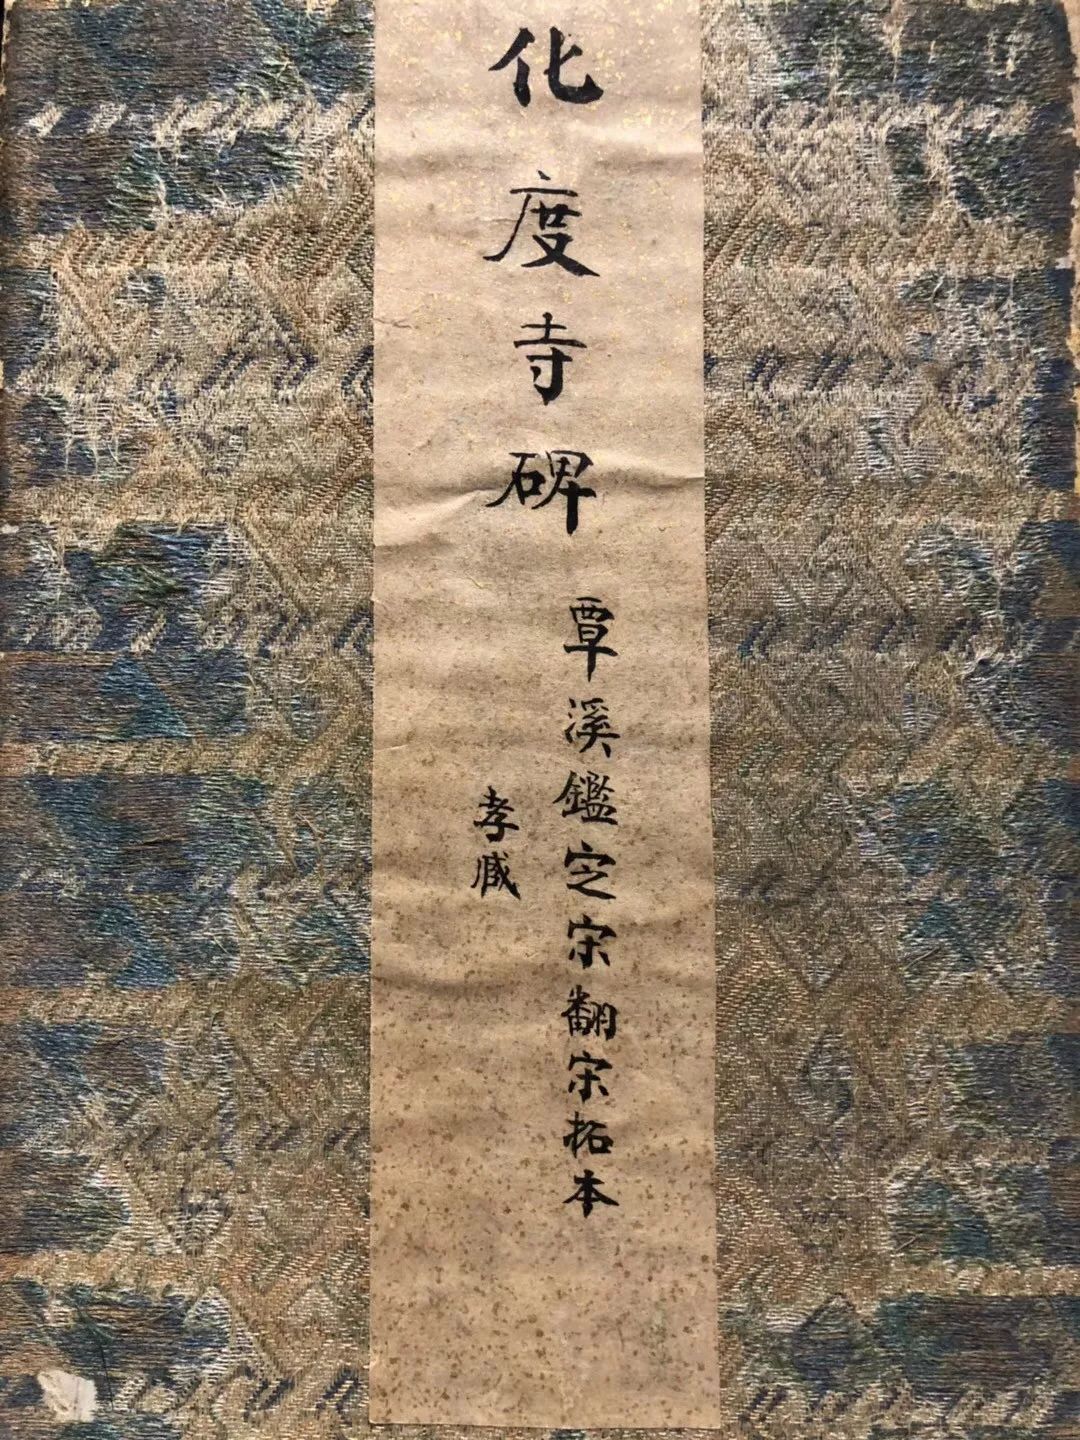 化度寺碑
覃溪鑑定宋翻宋拓本
孝臧